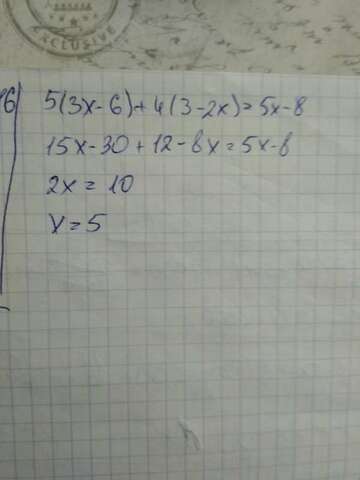 EXCLUSIVE
16) 5(3x-6)+4(3-2x)=5x-8
15x-30+12-8x=5x-8
2x=10
x=5